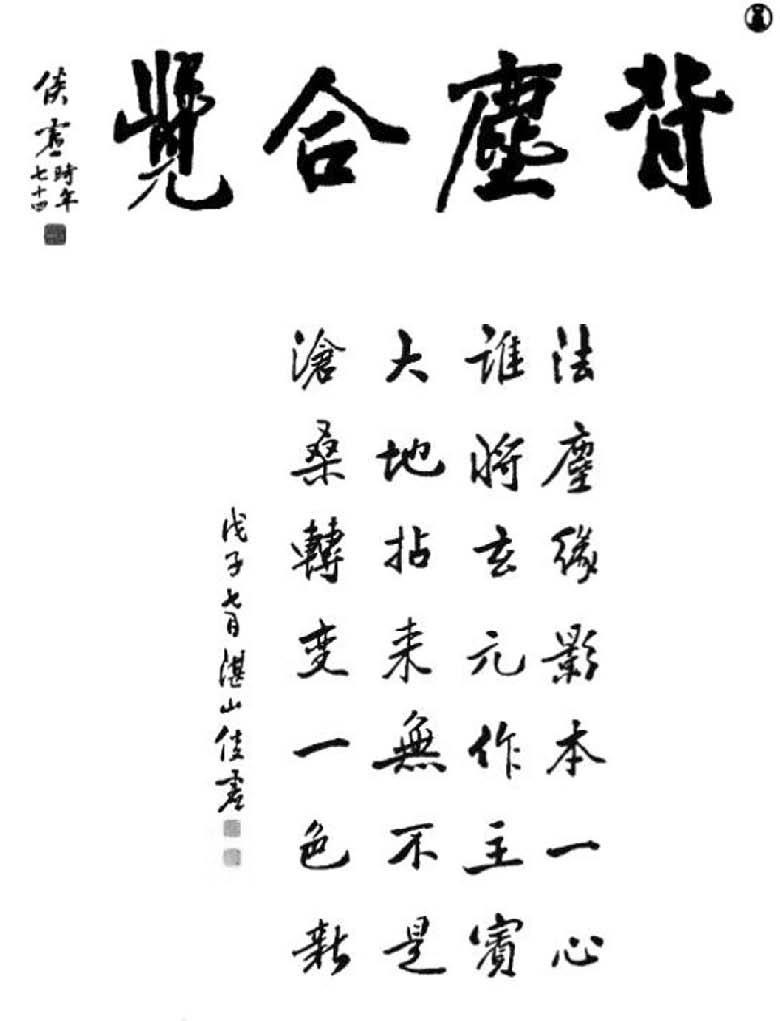 背塵合覺
倓虛
時年
七十四
法塵緣影本一心
誰將玄元作主賓
大地拈来無不是
滄桑轉变一色新
戊子七月湛山倓虛